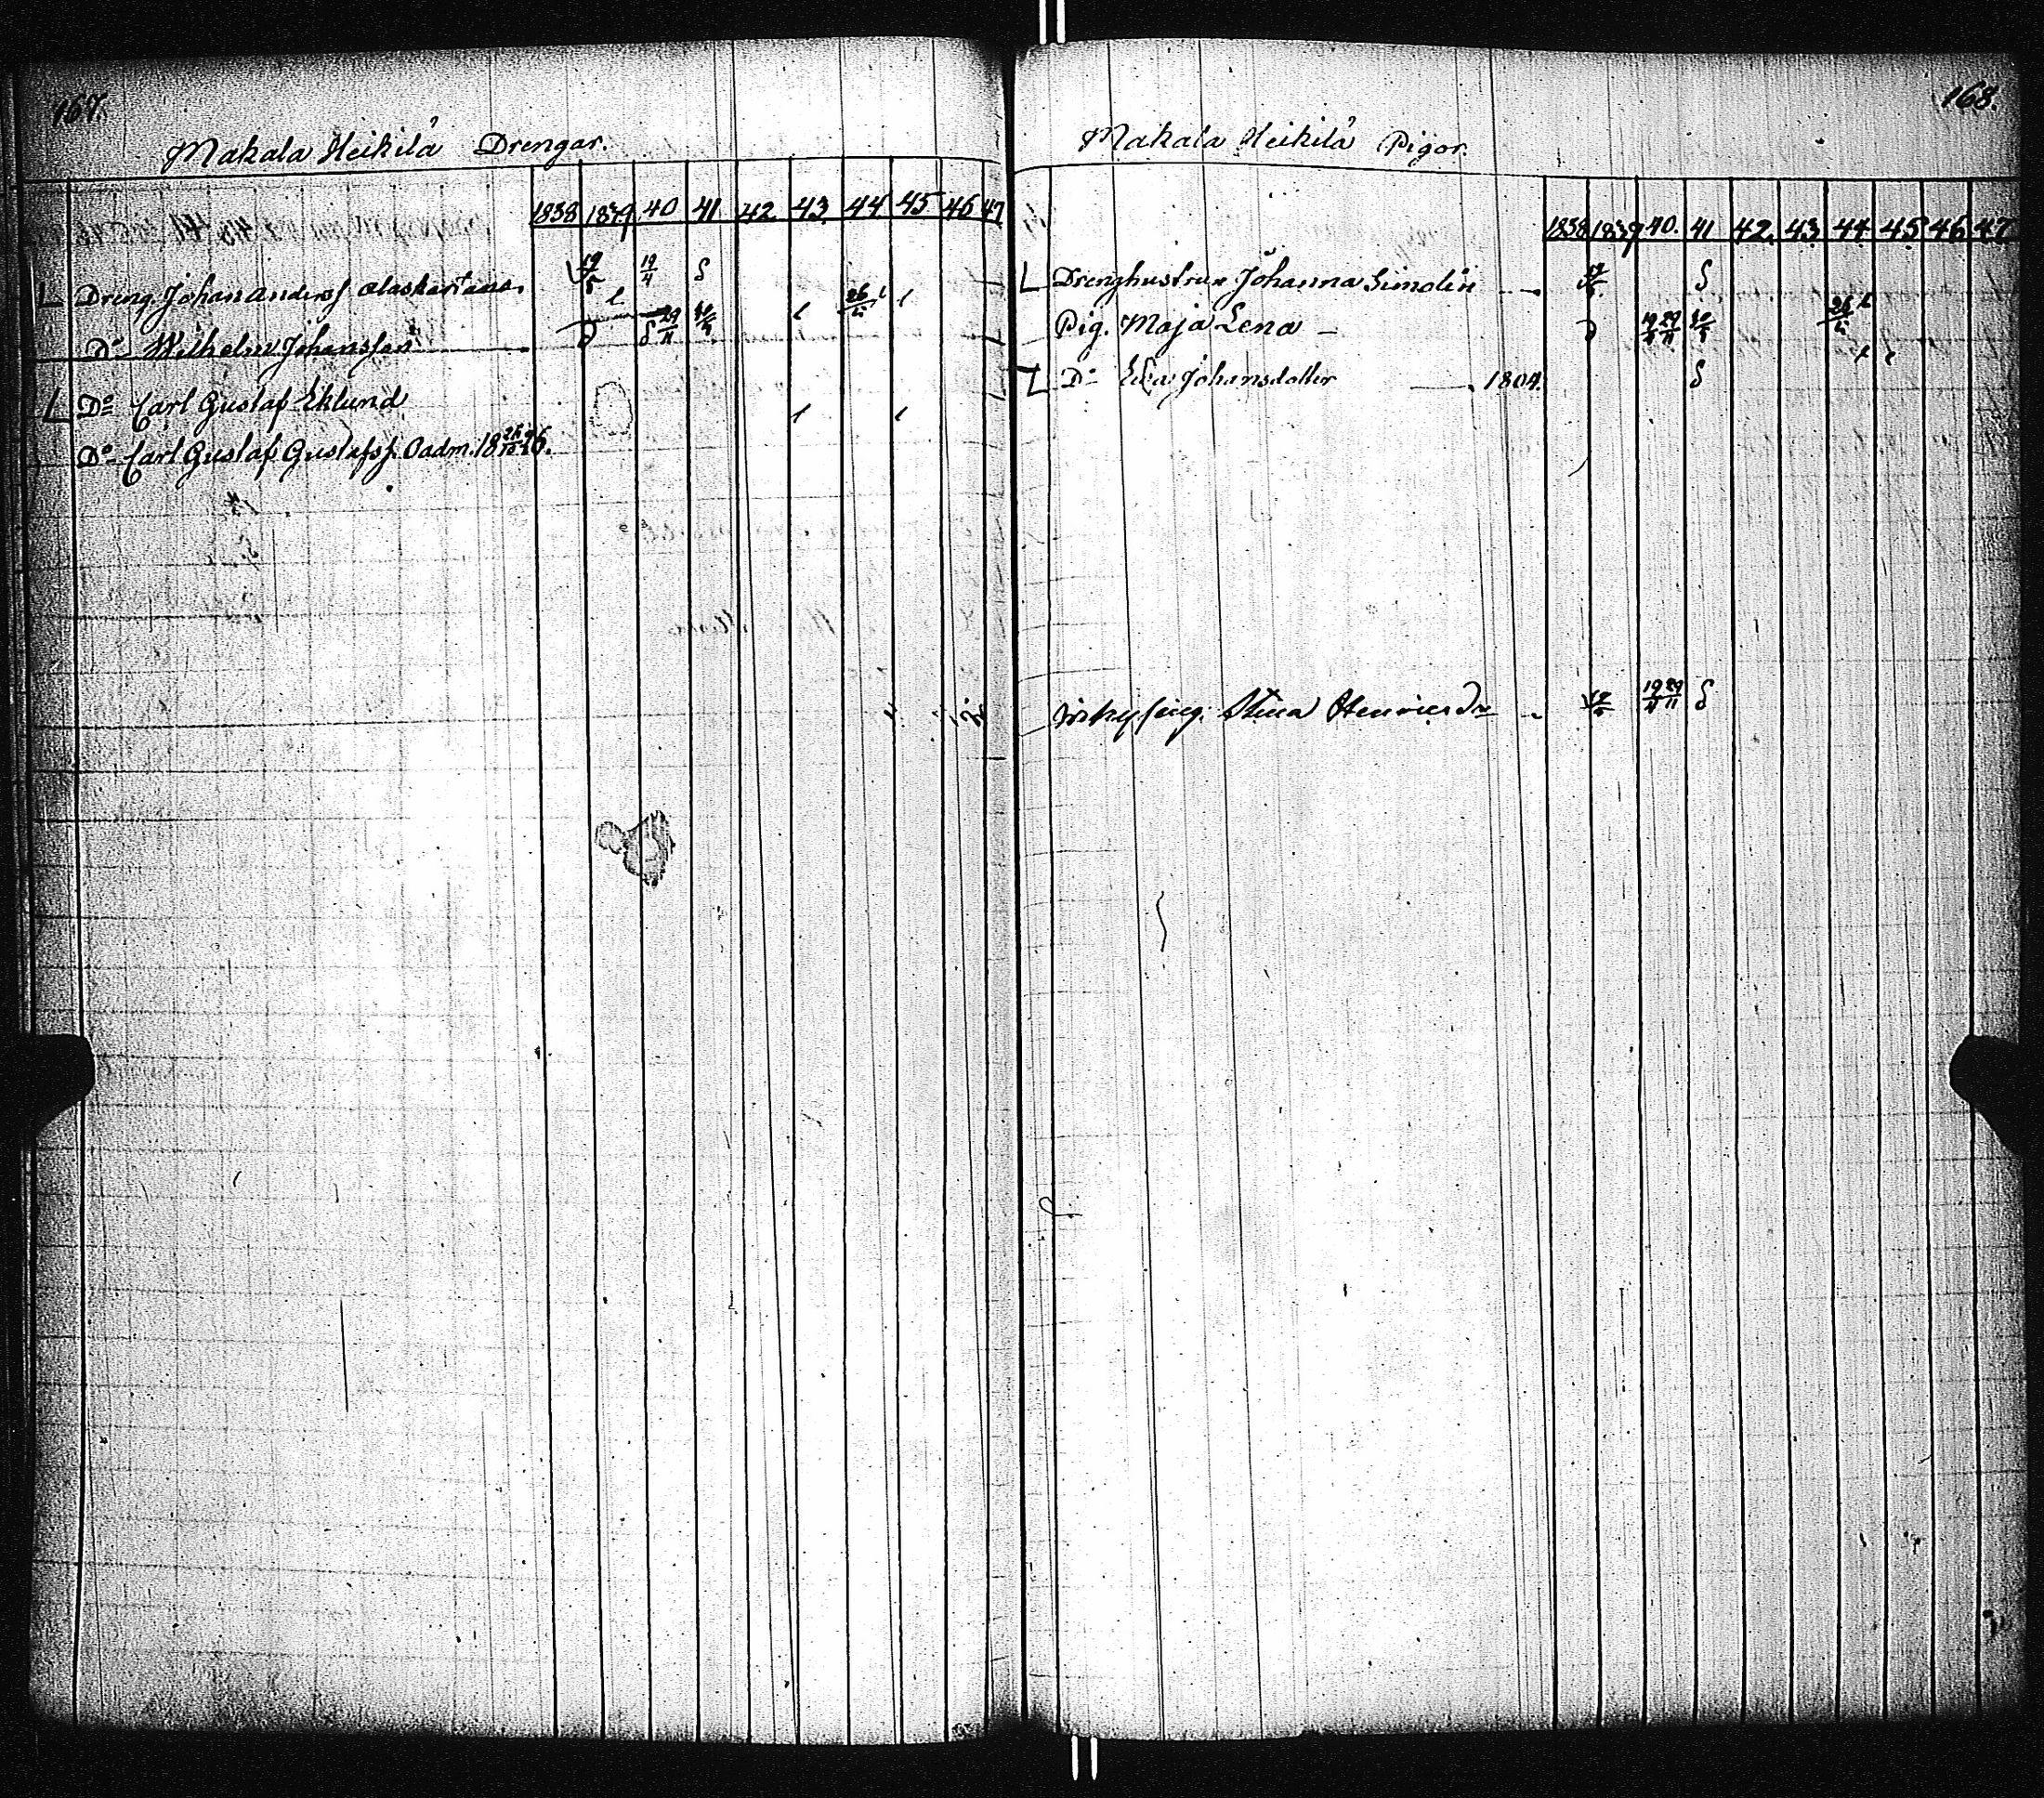 167.
Makala Heikilä Drengar.
1838 1839 40 41 42 43 44 45 46 47
Dreng. Johan Anderss Alaskartano. 19/5 19/4 S
Do Wilhelm Johansson S 29/11
Do Carl Gustaf Eklund
Do Carl Gustaf Gustafss. Oadm. 18 26.
168.
Makala Heikilä Pigor.
1838 1839 40. 41 42. 43 44 45 46 47
Drenghustrun Johanna Simolin S
Pig. Maja Lena 19/4 29/11
Do Eva Johansdotter 1804. S
Stina Henricsdr 19/4 29/11 S